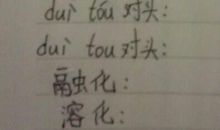 duì tóu 对头：
duì tou 对头：
融化：
溶化：